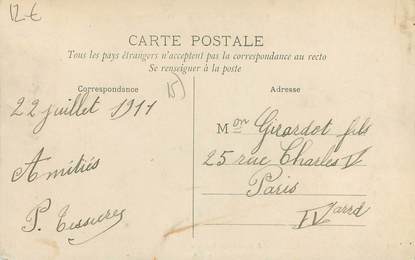 12.€
CARTE POSTALE
Tous les pays étrangers n'acceptent pas la correspondance au recto
Se renseigner à la poste
Correspondance
15)
Adresse
22 juillet 1911
Amitiés
P.
Mon Girardot fils
25 rue Charles V
Paris
IV arrd